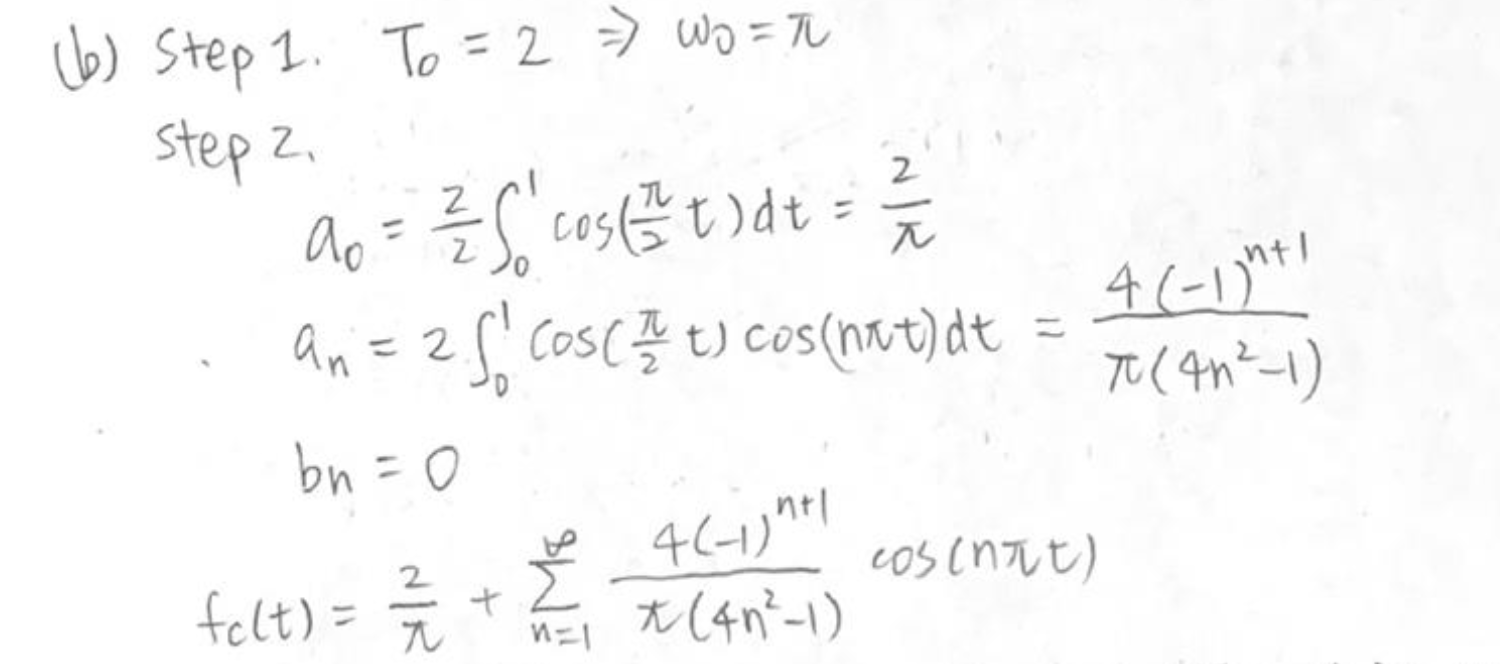 (b) Step 1. T₀ = 2 ⇒ ω₀ = π
Step 2.
a₀ = 2/2 ∫₀¹ cos(π/2 t) dt = 2/π
aₙ = 2 ∫₀¹ cos(π/2 t) cos(nπt) dt = 4(-1)ⁿ⁺¹ / π(4n²-1)
bn = 0
fc(t) = 2/π + ∑ₙ₌₁^∞ 4(-1)ⁿ⁺¹ / π(4n²-1) cos(nπt)